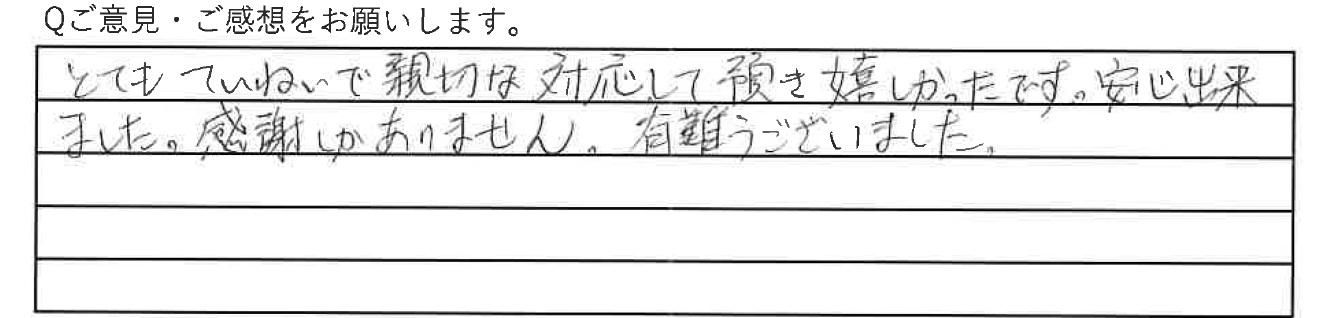 Qご意見・ご感想をお願いします。
とても ていねいで親切な対応して預き嬉しかったです。安心出来
ました。感謝しかありません。有難うございました。